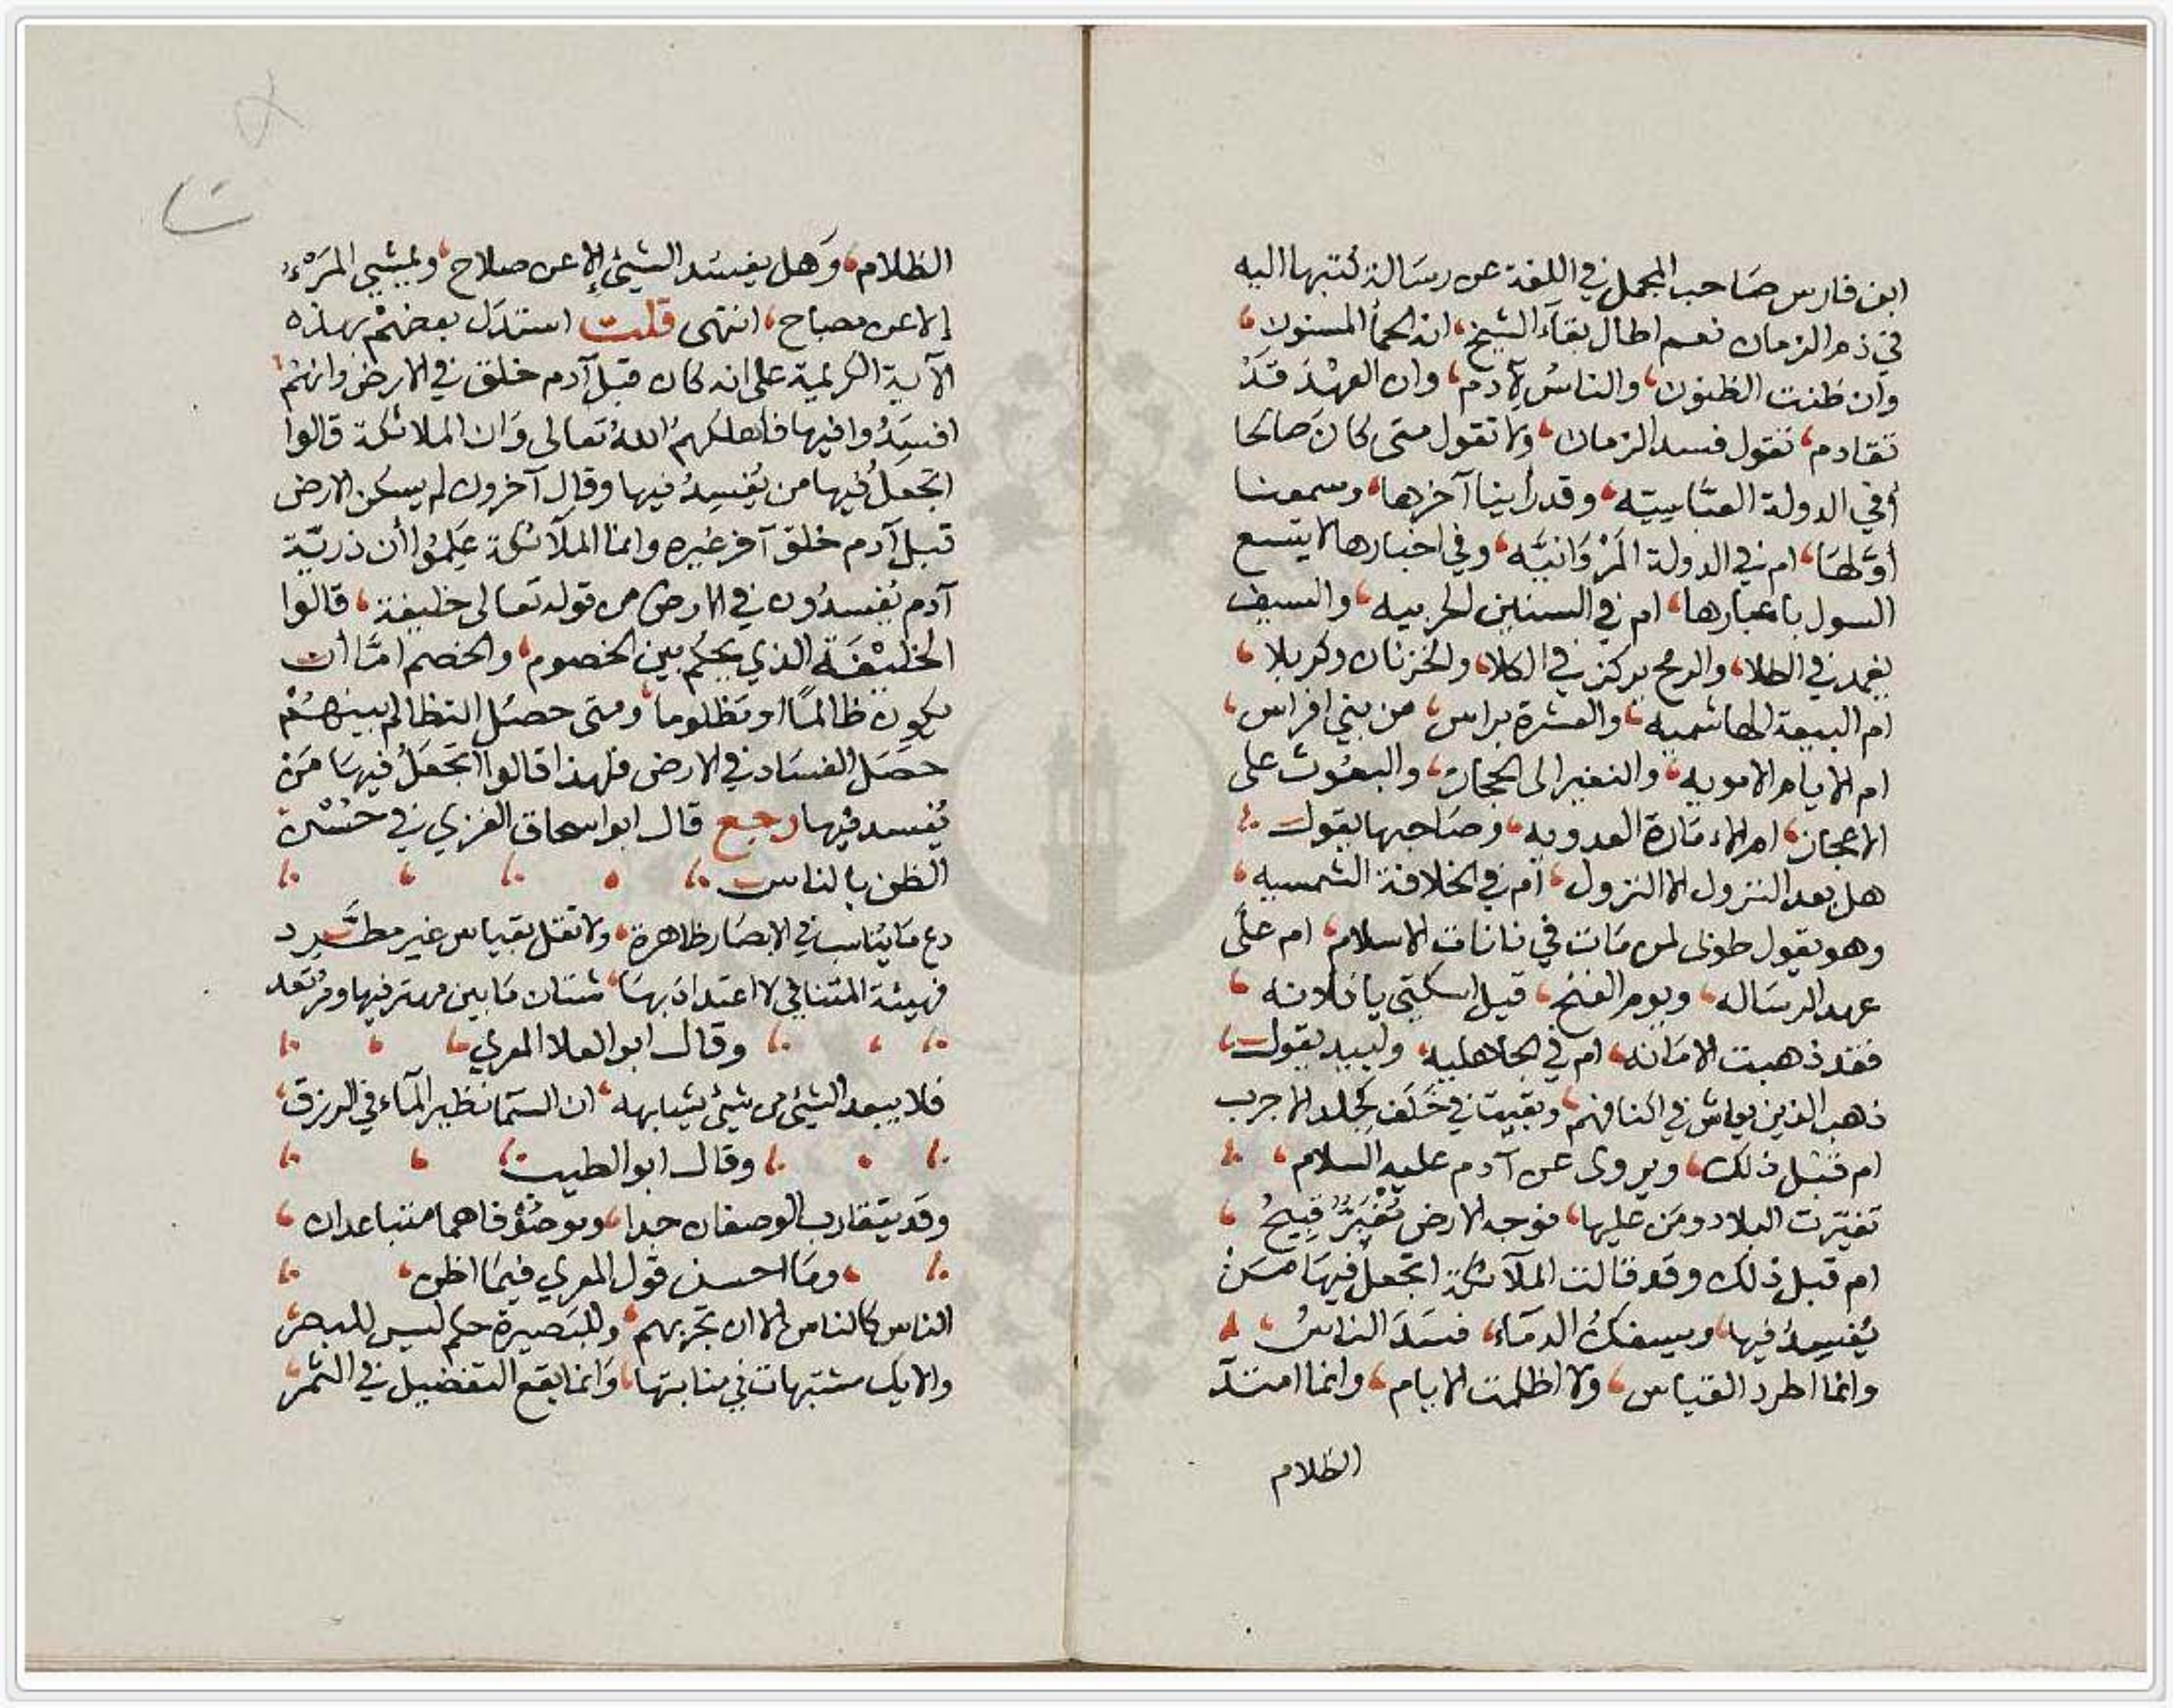 ابن فارس صاحب المجمل في اللغة عن رسالة كتبها اليه
في ذم الزمان نعم اطال بقاء الشيخ، انه الحمأ المسنون،
وان ظنت الظنون، والناسُ لآدم، وان العهْدَ قَدْ
تقادم، تقول فسد الزمان، ولا تقول متى كانَ صالحا
أفي الدولة العبَّاسِيَّه، وقد رأينا آخرها، وسمعنا
أوَّلهَا، ام في الدولة المَرْوَانيَّه، وفي اخبارها لا يتسع
السول باغبارها، ام في السنين الحربيه، والسيف
يغمد في الطلا، والرمح يركز في الكلا، والحزنان وكربلا،
ام البيعة الهاشميه، والعشرة براس، من بني افراس،
ام الايام الامويه، والنفير الى الحجاز، والبعُوث على
الاعجاز، ام الامَارة العدويه، وصَاحبها يقول
هل بعد النزول الا النزول، أم في الخلافة الشمسيه،
وهو يقول طوبى لمن مَات في نانات الاسلام، ام على
عهد الرسَاله، ويوم الفتح، قيل اسكتي يا فلانه،
فقد ذهبت الامَانه، ام في الجاهليه، ولبيد يقول،
ذهب الذين يعاش في اكنافهم، وبقيت في خَلَف كجلد الاجرب
ام قبْل ذلك، ويروى عن آدم عليه السلام،
تغيَّرت البلاد ومَن عليها، فوجه الارض مُغْبَرٌّ قبِيحُ،
ام قبل ذلك وقد قالت الملآئكة اتجعلُ فيهَا مَنْ
يُفسِدُ فيها، ويسفكُ الدمَاء، فسَدَ الناسُ،
وانما اطرد القياس، ولا اظلمت الايام، وانما امتدّ
الظلام
الظلام، وَهل يفسُد الشيئ إلا عن صلاح، ويمشي المَرْءُ
إلا عن مصباح، انتهى قلت استدَل بعضهمْ بهذه
الآية الكريمة على انه كان قبل آدم خلق في الارض وانهُم
افسَدُوا فيها فاهلكهمُ اللهُ تعالى وَان الملائكة قالوا
اتجعلُ فيها من يُفسِدُ فيها وقال آخرون لم يسكن الارض
قبل آدم خلق آخر غيره وانما الملآئكة عَلِمُوا أن ذريّة
آدم يُفسدُون في الارض من قوله تعالى خليفة، قالوا
الخليْفَة الذي يحكُم بين الخصوم، والخصم امَّا أن
يكون ظالمًا او مَظلوما، ومتى حصَل التظالم بينهُمْ
حصَل الفسَاد في الارض فلهذا قالوا اتجعَلُ فيهَا مَن
يُفسد فيها رجع قال ابو اسحاق الغزي في حُسْن
الظن بالناس
دع مَا يُناسب في الابصَار ظاهرة، ولا تقل بقياس غير مطَّرد
فهيئة المتنافي لا اعتدادَ بهَا، شتان مَا بين مهتز فيها ومُرتعد
وقال ابو العلا المعري
فلا يبعد الشيئ من شيئ يشابهه، ان السَّما نظير المآء في الزرق،
وقال ابو الطيب
وقد يتقارب الوصفان جدا، وموصُوْفاهما متباعدان،
ومَا احسن قول المعري فيمَا اظن
الناس كالناس الا ان تجرّبهم، وللبَصيرة حكم ليس للبصر
والايك مشتبهات في منابتها، وَانما يقع التفضيل في الثمر